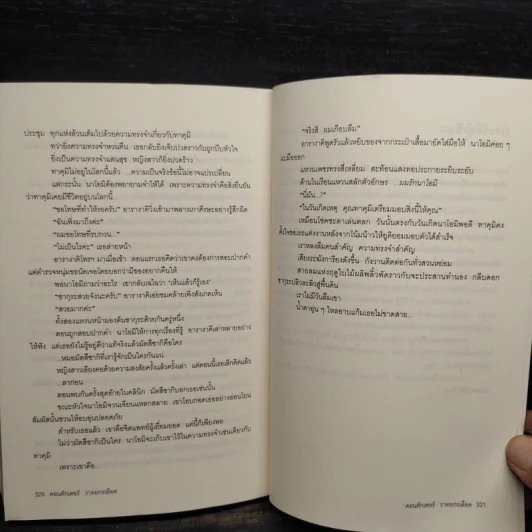 ประชุม ทุกแห่งล้วนเต็มไปด้วยความทรงจำเกี่ยวกับทาคุมิ
ทว่ายิ่งความทรงจำหวนคืน เธอกลับยิ่งเจ็บปวดราวกับถูกบีบหัวใจ
ยิ่งเป็นความทรงจำแสนสุข หญิงสาวก็ยิ่งปวดร้าว
ทาคุมิไม่อยู่ในโลกนี้แล้ว ...ความเป็นจริงข้อนี้ไม่อาจแปรเปลี่ยน
แต่กระนั้น นาโอมิต้องพยายามจำให้ได้ เพราะความทรงจำคือสิ่งยืนยัน
ว่าทาคุมิเคยมีชีวิตอยู่บนโลกนี้...
"ขอโทษที่ทำให้รอครับ" อารางาคิวิ่งเข้ามาพลางเกาศีรษะอย่างรู้สึกผิด
"ฉันเพิ่งมาถึงค่ะ"
"ผมขอโทษที่รบกวน..."
"ไม่เป็นไรค่ะ" เธอส่ายหน้า
อารางาคิโทรฯ มาเมื่อเช้า ตอนแรกเธอคิดว่าเขาคงต้องการสอบปากคำ
แต่ตำรวจหนุ่มชอบนัดเจอโดยบอกว่ามีของอยากคืนให้
พอนาโอมิถามว่าอะไร เขากลับเฉไฉว่า 'เห็นแล้วก็รู้เอง'
"ซากุระสวยจังนะครับ" อารางาคิเอ่ยชมคล้ายเพิ่งสังเกตเห็น
"สวยมากค่ะ"
ทั้งสองแหงนหน้ามองต้นซากุระด้วยกันครู่หนึ่ง
ตอนถูกสอบปากคำ นาโอมิให้การทุกเรื่องที่รู้ อารางาคิเล่าหลายอย่าง
ให้ฟัง แต่เธอยังไม่รู้อยู่ดีว่าแท้จริงแล้วมัตสึซากิคือใคร
...หมอมัตสึซากิที่เรารู้จักเป็นใครกันแน่
หญิงสาวเอียงคอด้วยความสงสัยครั้งแล้วครั้งเล่า แต่ตอนนี้เธอเลิกคิดแล้ว
...ลาก่อน
ตอนพบกันครั้งสุดท้ายในคลินิก มัตสึซากิบอกเธอเช่นนั้น
ขณะหัวใจนาโอมิจวนเจียนแหลกสลาย เขาโอบกอดเธออย่างอ่อนโยน
สัมผัสนั้นชวนให้อบอุ่นปลอดภัย
สำหรับเธอแล้ว เขาคือจิตแพทย์ผู้เยี่ยมยอด แค่นี้ก็เพียงพอ
ไม่ว่ามัตสึซากิเป็นใคร นาโอมิจะเก็บเขาไว้ในความทรงจำเช่นเดียวกับ
ทาคุมิ
เพราะเขาคือ...
320 ดอนคักเตอร์ วาทยกรเลือด
"จริงสิ ...ผมเกือบลืม"
อารางาคิพูดรัวแล้วหยิบของจากกระเป๋าเสื้อมายัดใส่มือให้ นาโอมิค่อย ๆ
แบมือออก
แหวนเพชรทรงสี่เหลี่ยม สะท้อนแสงทอประกายระยิบระยับ
ด้านในเรือนแหวนสลักตัวอักษร ...ผมรักนาโอมิ
"นี่มัน...?"
"ในวันเกิดเหตุ คุณทาคุมิเตรียมมอบสิ่งนี้ให้คุณ"
เหมือนโชคชะตาเล่นตลก วันนั้นตรงกับวันเกิดนาโอมิพอดี ทาคุมิคง
ตั้งใจขอเธอแต่งงานหลังจากโน้มน้าวให้ยูคิยอมมอบตัวได้สำเร็จ
เราหลงลืมคนสำคัญ ความทรงจำสำคัญ
เสียงระฆังการียังดังขึ้น กังวานติดต่อกันทั่วสวนหย่อม
สายลมแห่งฤดูใบไม้ผลิพลิ้วพัดราวกับจะประสานทำนอง กลีบดอก
ซากุระปลิวละลิ่วสู่พื้นดิน
เราไม่มีวันลืมเขา
น้ำตาอุ่น ๆ ไหลอาบแก้มเธอไม่ขาดสาย...
ดอนคักเตอร์ วาทยกรเลือด 321